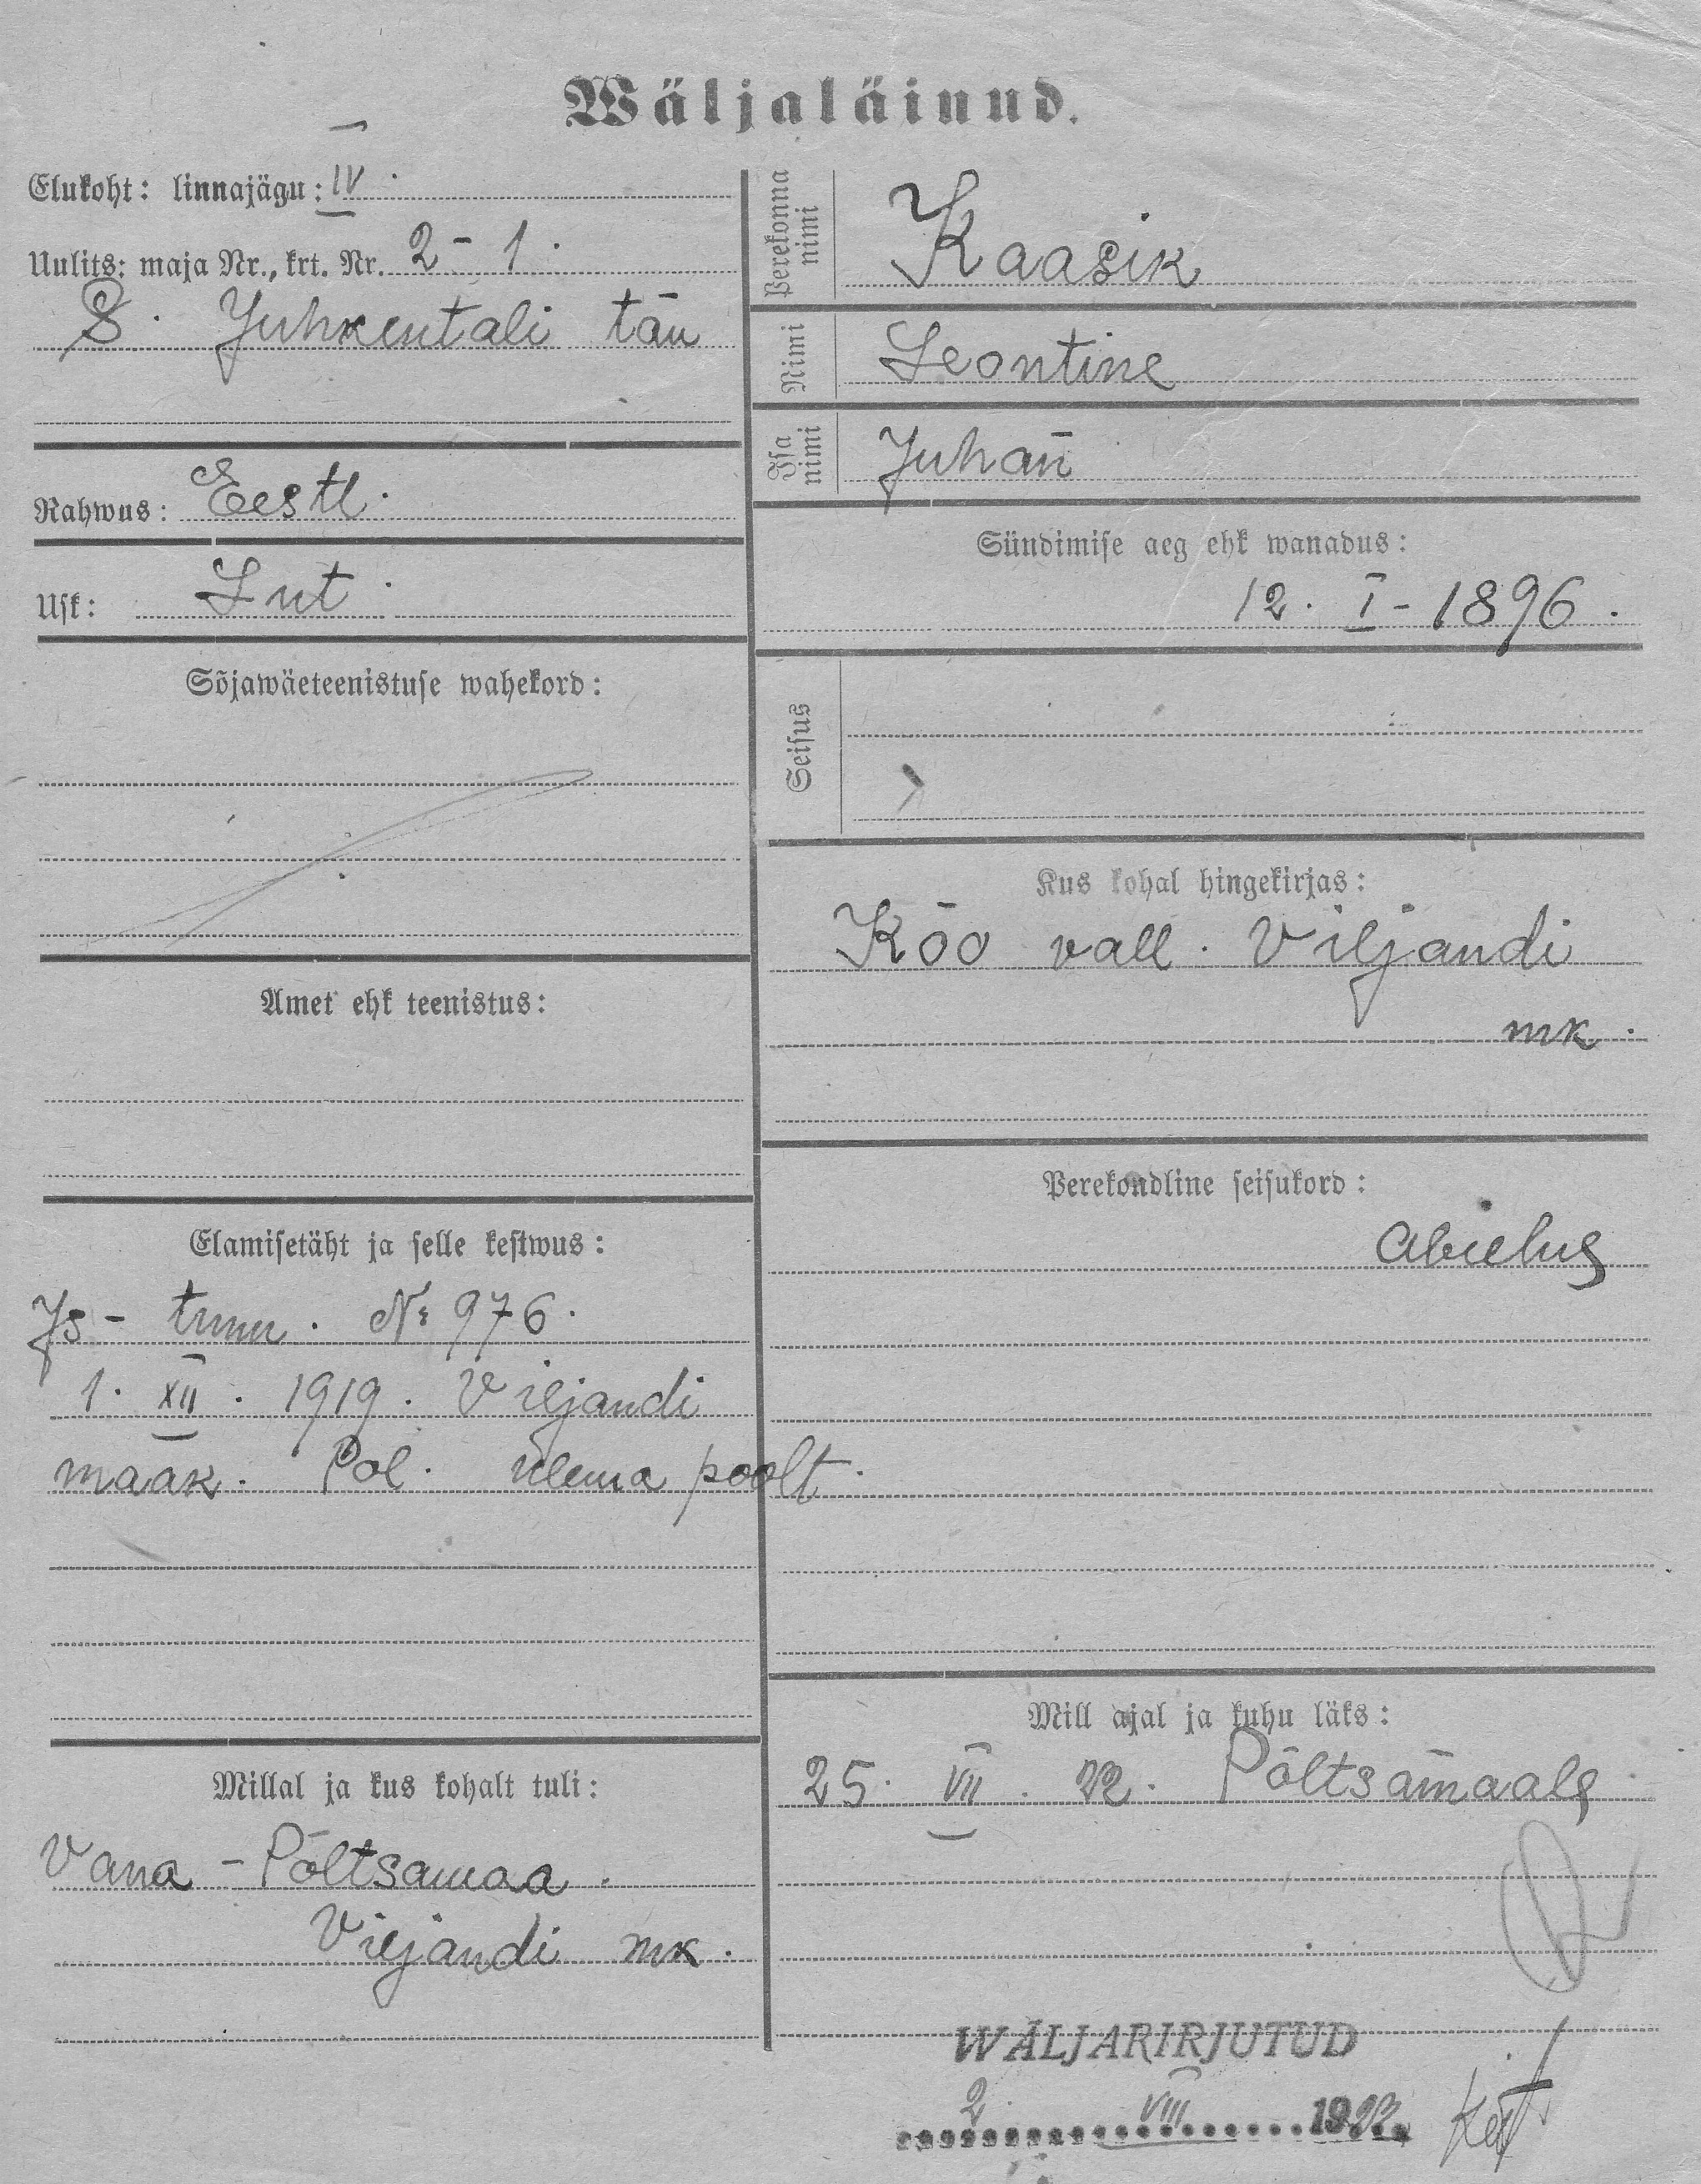 Wäljaläinud.
Elukoht: linnajägu: IV.
Uulits: maja Nr., krt. Nr. 2 - 1.
S. Juhkentali tän
Rahwus: Eestl.
Usk: Lut.
Sõjawäeteenistuse wahekord:
Amet ehk teenistus:
Elamisetäht ja selle kestwus:
Js - tunn. № 976.
1. XII. 1919. Viljandi
maak. Pol. ülema poolt.
Millal ja kus kohalt tuli:
Vana - Põltsamaa.
Viljandi mk.
Perekonna nimi
Kaasik
Nimi
Leontine
Isa nimi
Juhan
Sündimise aeg ehk wanadus:
12. I - 1896.
Seisus
Kus kohal hingekirjas:
Kõo vall. Viljandi
mk.
Perekondline seisukord:
abielus
Mill ajal ja kuhu läks:
25. VII. 22. Põltsamaale
WÄLJAKIRJUTUD
2. VIII 1922.